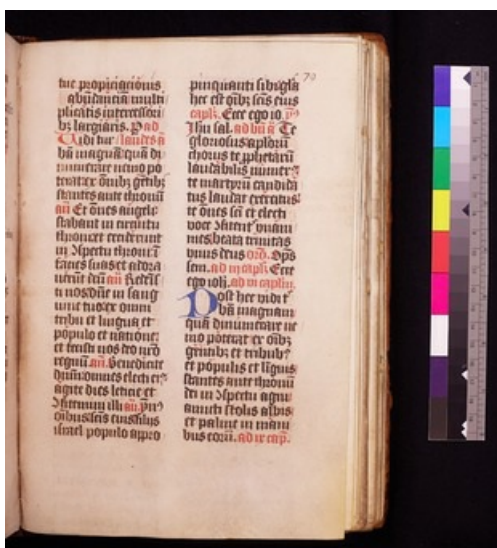 tue propiciacionis
abundancia multi
plicatis intercessori
bz largiaris. P ad
Uidi tur laudes a
bā magnā quā di
numerare nemo po
terat ex oībz gētibz
stantes ante thronū
añ Et oēs angeli
stabant in circuitu
throni et ceciderunt
in ꝯspectu throni ī
facies suas et adora
uerūt deū añ Redemi
sti nos dñe in sang
uine tuo ex omni
tribu et lingua et
populo et natione
et fecisti nos deo nrō
regnū añ. Benedicite
dūm omnes electi eiꝰ
agite dies leticie et
ꝯfitemini illi añ. ymꝰ
oibus scīs eius filijs
israel populo appro
70
pinquanti sibi gła
hec est oībz scīs eius
capłm. Ecce ego io. yꝰ
Ihū sal. ad bñ a Te
gloriosus apłorū
chorus te ꝓphetarū
laudabilis numerꝰ
te martyrū candida
tus laudat exercitus
te oēs scī et electi
voce ꝯfitent̄ unani
mes beata trinitas
unus deus orō. Oṗs
sem. ad iij capłm Ecce
ego ioh. ad vi capłm.
Post hec vidi t̄
bā magnam
quā dinumerare ne
mo poterat ex oībz
gentibz et tribubꝰ
et populis et liguis
stantes ante thronū
dei in ꝯspectu agni
amicti stolis albis
et palme in mani
bus eorū. ad ix cap̄.